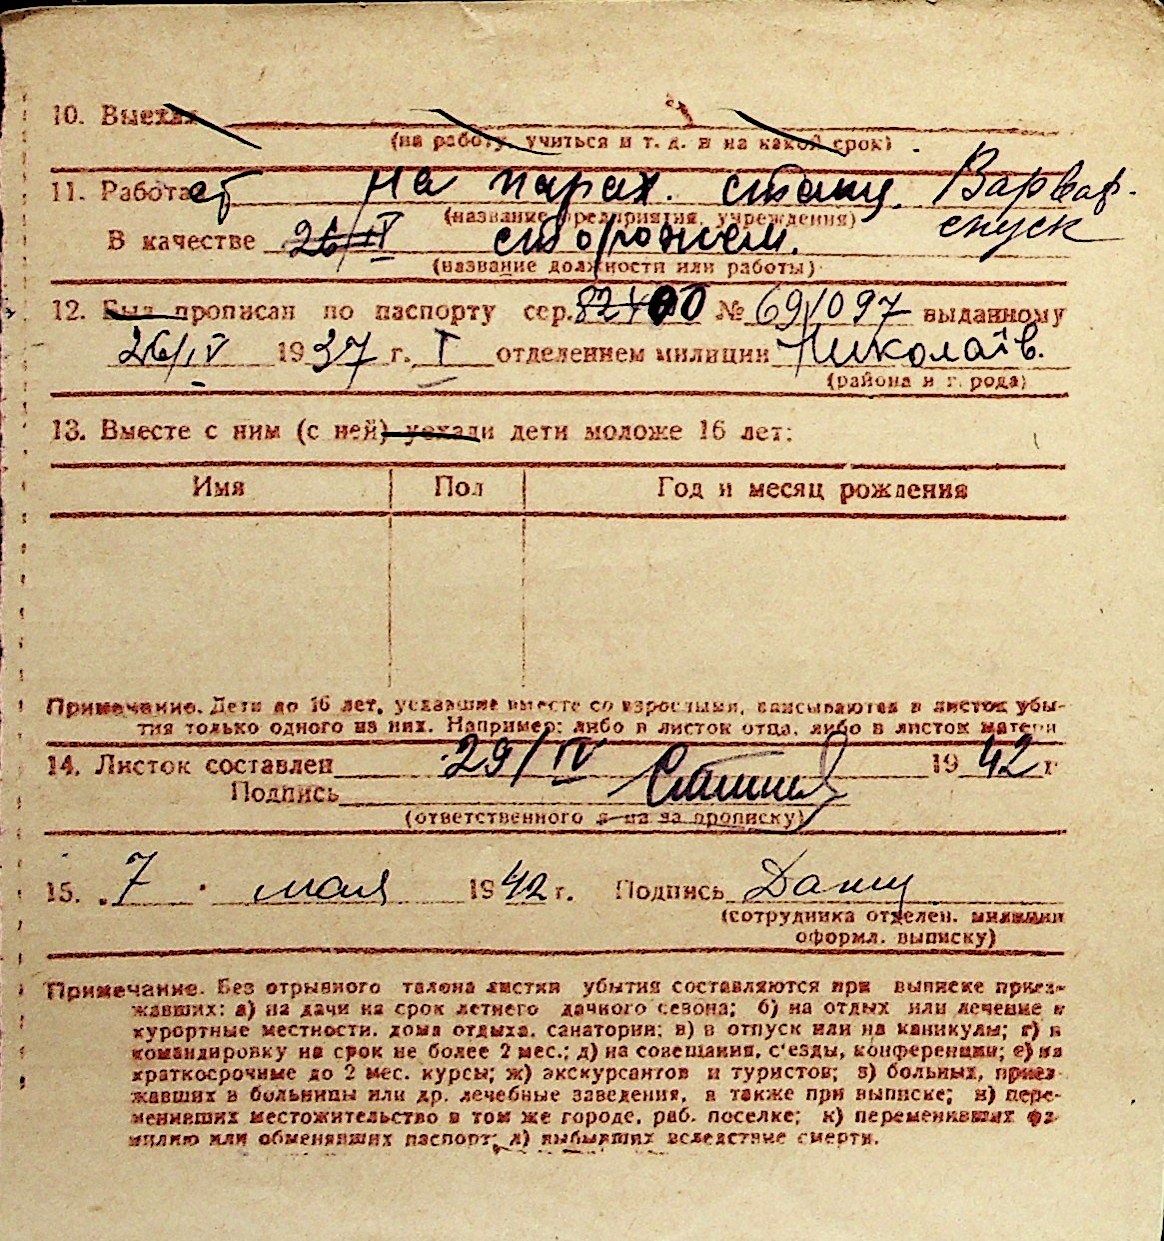 10. Выехал
(на работу, учиться и т. д. и на какой срок)
11. Работает на парах. станц. Варвар.
(название предприятия, учреждения) спуск
В качестве 26/IV сторожем.
(название должности или работы)
12. Был прописан по паспорту сер. № 691097 выданному
26/IV 1937 г. I отделением милиции Николаїв.
(района и города)
13. Вместе с ним (с ней) уехали дети моложе 16 лет:
Имя Пол Год и месяц рождения
Примечание. Дети до 16 лет, уехавшие вместе со взрослыми, вписываются в листок убы-
тия только одного из них. Например: либо в листок отца, либо в листок матери
14. Листок составлен 29/IV 1942 г
Подпись
(ответственного за прописку)
15. 7 мая 1942 г. Подпись
(сотрудника отделен. милиции
оформл. выписку)
Примечание. Без отрывного талона листки убытия составляются при выписке приез-
жавших: а) на дачи на срок летнего дачного сезона; б) на отдых или лечение в
курортные местности, дома отдыха, санатории; в) в отпуск или на каникулы; г) в
командировку на срок не более 2 мес.; д) на совещания, с'езды, конференции; е) на
краткосрочные до 2 мес. курсы; ж) экскурсантов и туристов; з) больных, приез-
жавших в больницы или др. лечебные заведения, а также при выписке; и) пере-
менивших местожительство в том же городе, раб. поселке; к) переменивших фа-
милию или обменявших паспорт; л) выбывших вследствие смерти.